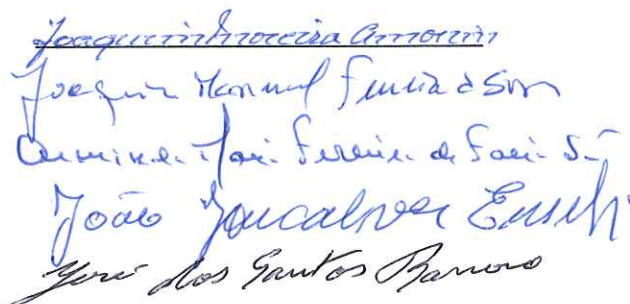 Joaquim Moreira Amorim
Joaquim Manuel Ferreira da Silva
Maria Ferreira de Faria Sá
João Goncalves Eusebi
José dos Santos Barroso